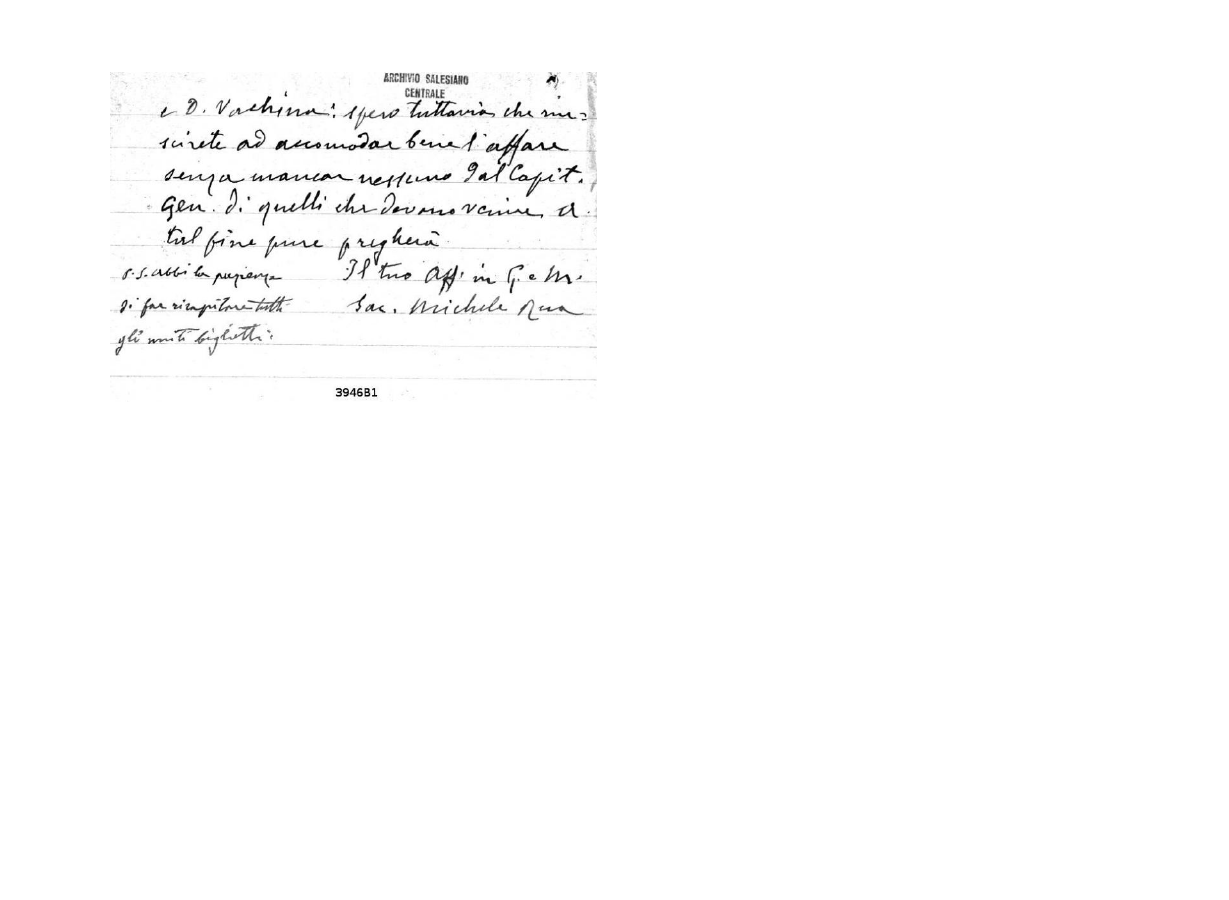 ARCHIVIO SALESIANO
CENTRALE
e D. Vachina: spero tuttavia che riu=
scirete ad accomodar bene l'affare
senza mancar nessuno dal Capit.
Gen. di quelli che devono venire. A
tal fine pure pregherà
Il tuo Aff. in G. e M.
Sac. Michele Rua
P.S. Abbi la pazienza
di far ricapitare tutti
gli uniti biglietti.
3946B1